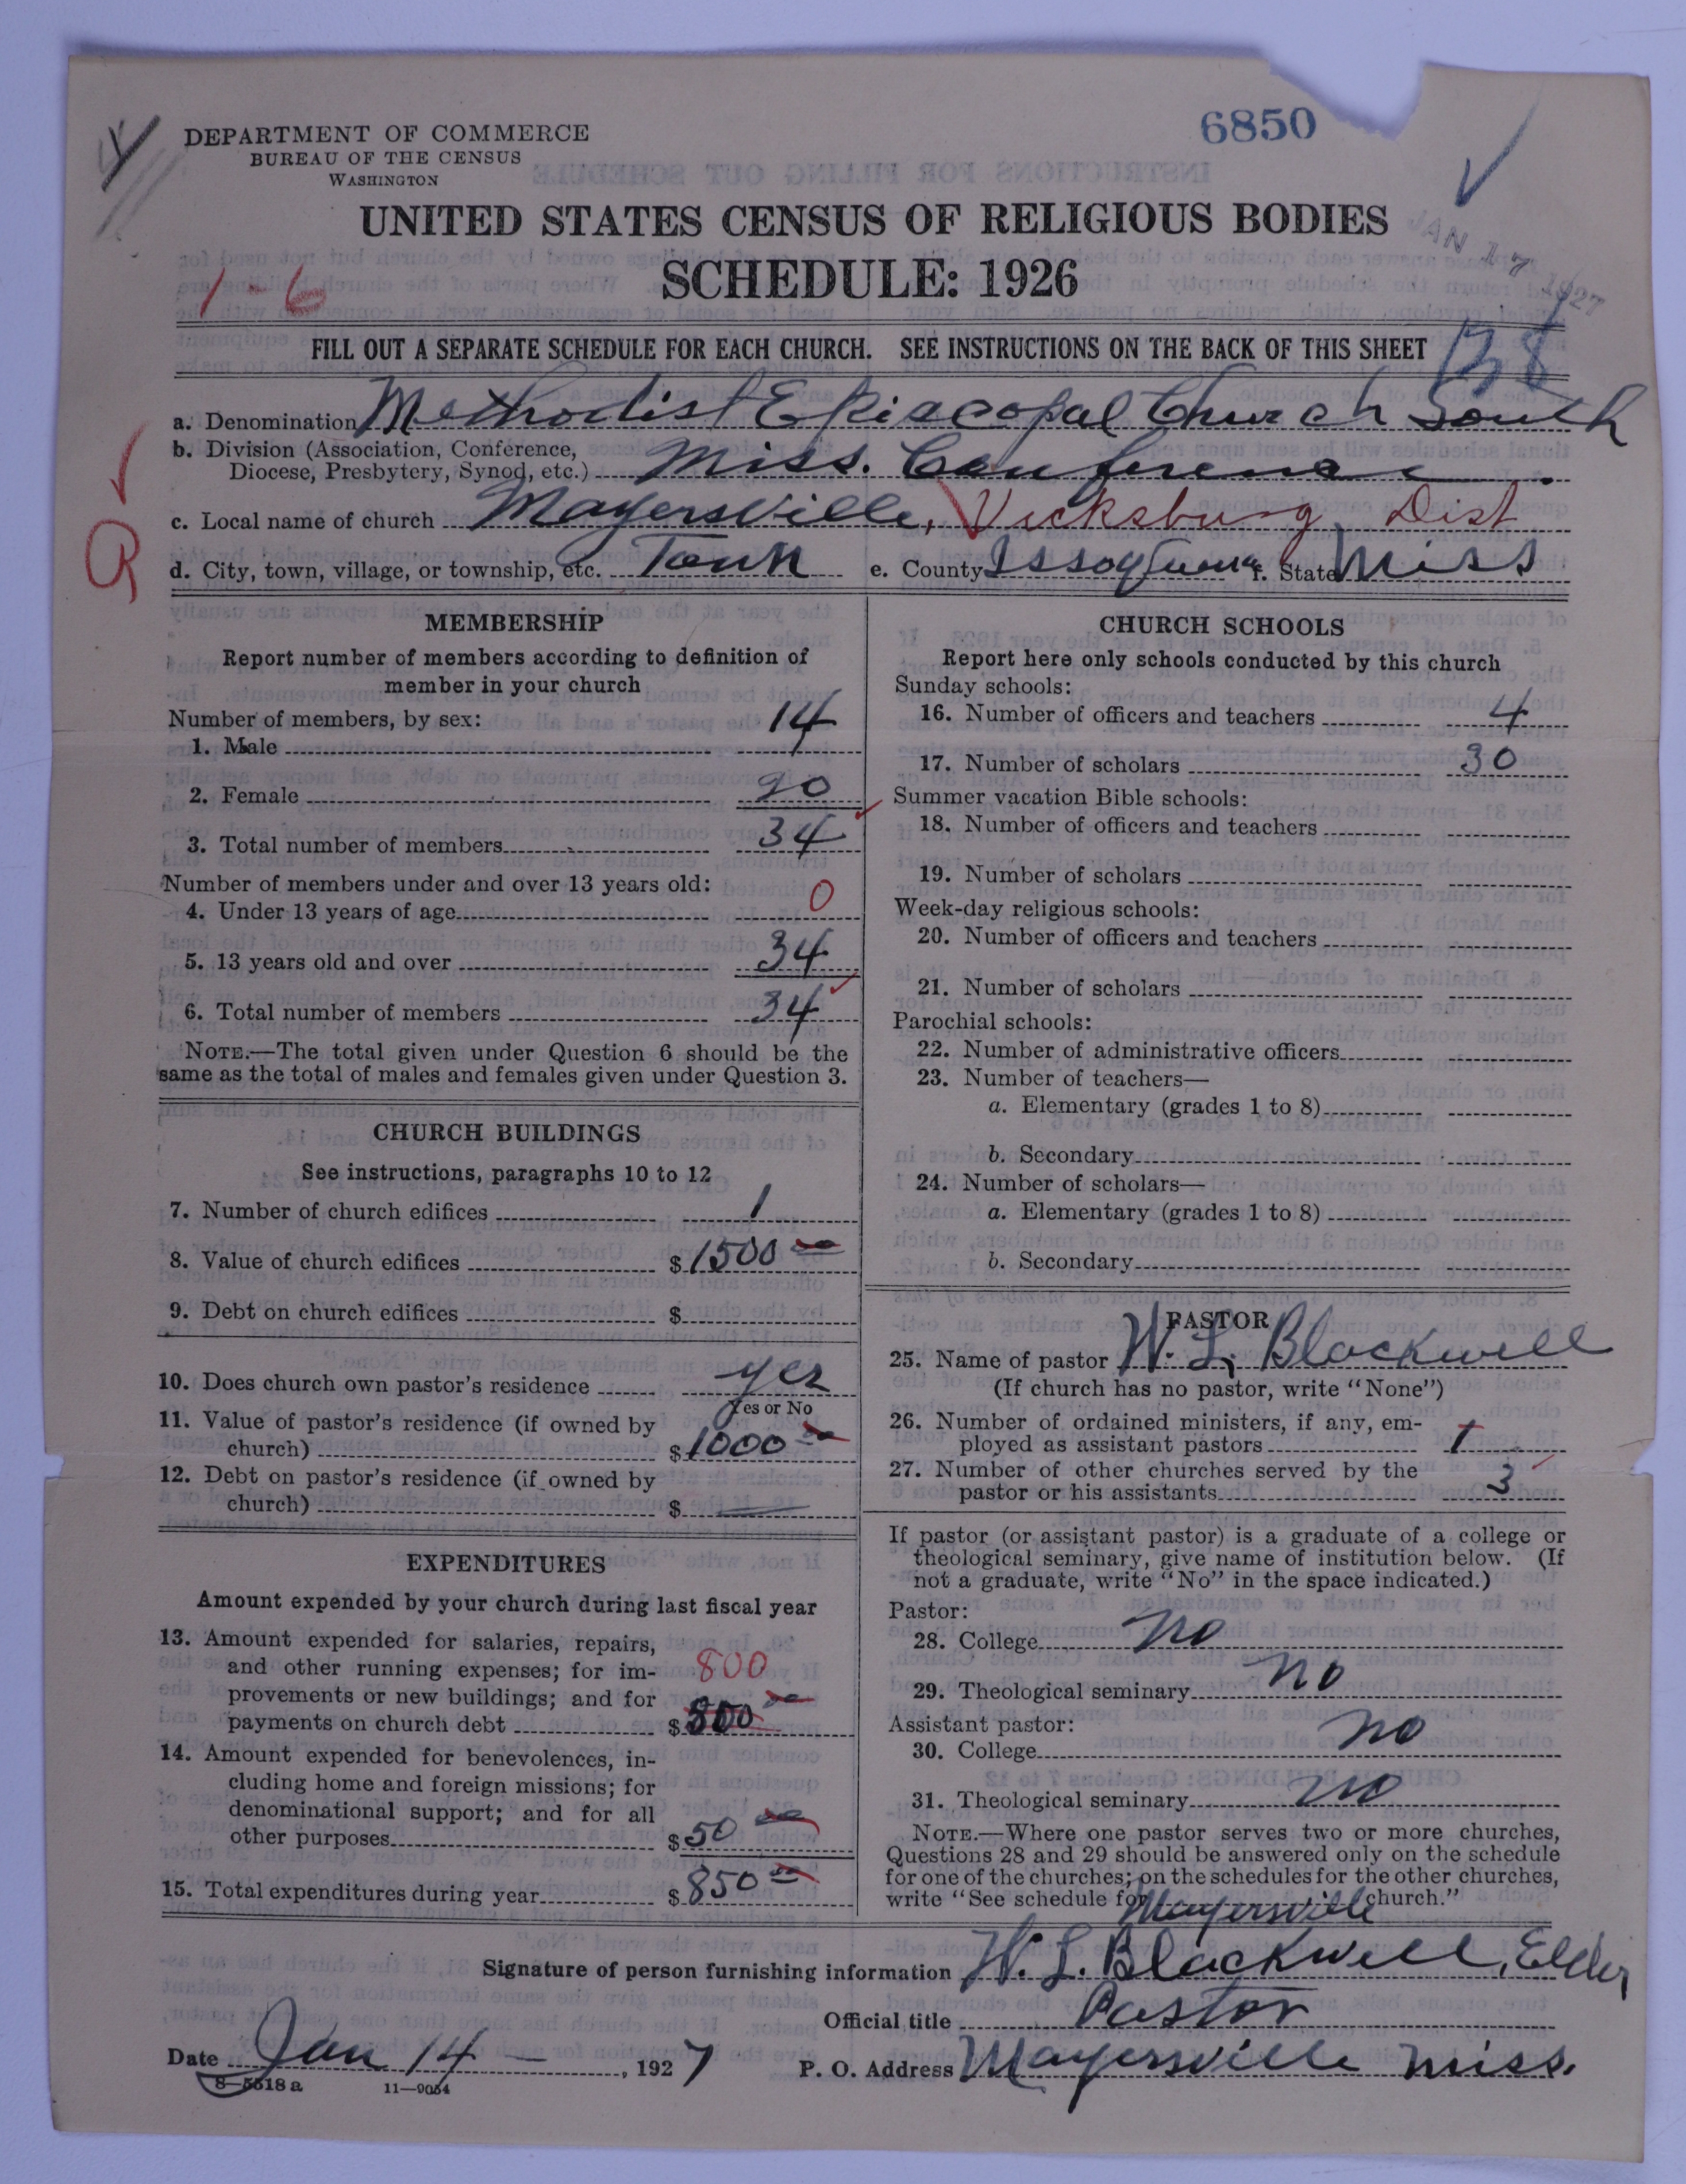 DEPARTMENT OF COMMERCE
BUREAU OF THE CENSUS
WASHINGTON
6850
JAN 17 1927
UNITED STATES CENSUS OF RELIGIOUS BODIES
SCHEDULE: 1926
1-6
FILL OUT A SEPARATE SCHEDULE FOR EACH CHURCH. SEE INSTRUCTIONS ON THE BACK OF THIS SHEET
a. Denomination Methodist Episcopal Church South
b. Division (Association, Conference,
Diocese, Presbytery, Synod, etc.) Miss. Conference
c. Local name of church Mayersville, Vicksburg Dist
d. City, town, village, or township, etc. Town e. County Issaquena f. State Miss
MEMBERSHIP
Report number of members according to definition of
member in your church
Number of members, by sex:
1. Male 14
2. Female 20
3. Total number of members 34
Number of members under and over 13 years old:
4. Under 13 years of age 0
5. 13 years old and over 34
6. Total number of members 34
NOTE.—The total given under Question 6 should be the
same as the total of males and females given under Question 3.
CHURCH BUILDINGS
See instructions, paragraphs 10 to 12
7. Number of church edifices 1
8. Value of church edifices $1500 00
9. Debt on church edifices $
10. Does church own pastor's residence yes
Yes or No
11. Value of pastor's residence (if owned by
church) $1000 00
12. Debt on pastor's residence (if owned by
church) $
EXPENDITURES
Amount expended by your church during last fiscal year
13. Amount expended for salaries, repairs,
and other running expenses; for im- 800
provements or new buildings; and for
payments on church debt $800 00
14. Amount expended for benevolences, in-
cluding home and foreign missions; for
denominational support; and for all
other purposes $50 00
15. Total expenditures during year $850 00
CHURCH SCHOOLS
Report here only schools conducted by this church
Sunday schools:
16. Number of officers and teachers 4
17. Number of scholars 30
Summer vacation Bible schools:
18. Number of officers and teachers
19. Number of scholars
Week-day religious schools:
20. Number of officers and teachers
21. Number of scholars
Parochial schools:
22. Number of administrative officers
23. Number of teachers—
a. Elementary (grades 1 to 8)
b. Secondary
24. Number of scholars—
a. Elementary (grades 1 to 8)
b. Secondary
PASTOR
25. Name of pastor W. L. Blackwell
(If church has no pastor, write "None")
26. Number of ordained ministers, if any, em-
ployed as assistant pastors 1
27. Number of other churches served by the
pastor or his assistants 3
If pastor (or assistant pastor) is a graduate of a college or
theological seminary, give name of institution below. (If
not a graduate, write "No" in the space indicated.)
Pastor:
28. College no
29. Theological seminary no
Assistant pastor:
30. College no
31. Theological seminary no
NOTE.—Where one pastor serves two or more churches,
Questions 28 and 29 should be answered only on the schedule
for one of the churches; on the schedules for the other churches,
write "See schedule for Mayersville church."
Signature of person furnishing information W. L. Blackwell, Elder
Official title Pastor
Date Jan 14 – , 1927 P. O. Address Mayersville Miss.
8—5518 a 11—9054